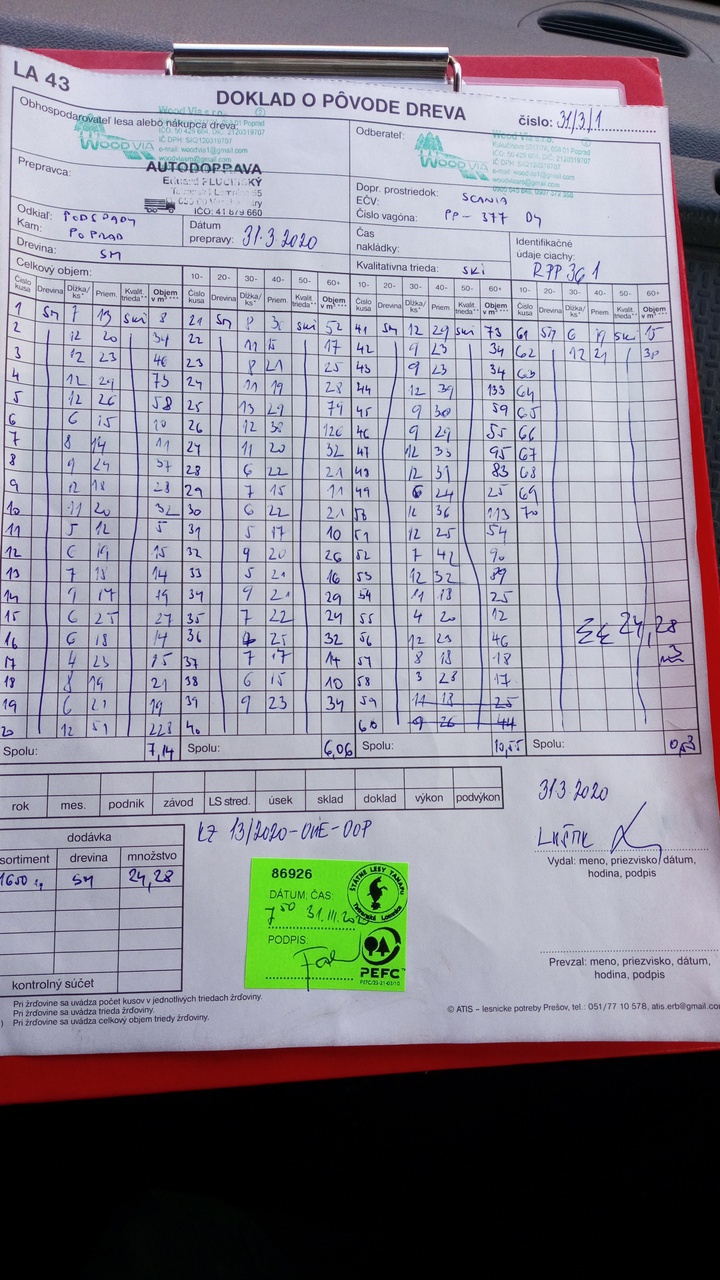 LA 43
DOKLAD O PÔVODE DREVA
číslo: 31/3/1
Obhospodarovateľ lesa alebo nákupca dreva:
Wood Via s.r.o.
WOOD VIA
IČ DPH: SK2120319707
e-mail: woodvia1@gmail.com
Odberateľ:
Wood Via s.r.o.
WOOD VIA
Prepravca:
AUTODOPRAVA
IČO: 41 879 660
Dopr. prostriedok: SCANIA
EČV:
Číslo vagóna: PP-377 DY
Odkiaľ: PODSPADY
Kam: POPRAD
Dátum prepravy: 31.3.2020
Čas nakládky:
Identifikačné údaje ciachy: RPP361
Drevina: SM
Kvalitatívna trieda: SKI
Celkový objem:
10- 20- 30- 40- 50- 60+ 10- 20- 30- 40- 50- 60+ 10- 20- 30- 40- 50- 60+
Číslo kusa Drevina Dĺžka/ks* Priem. Kvalit. trieda** Objem v m³ *** Číslo kusa Drevina Dĺžka/ks* Priem. Kvalit. trieda** Objem v m³ *** Číslo kusa Drevina Dĺžka/ks* Priem. Kvalit. trieda** Objem v m³ *** Číslo kusa Drevina Dĺžka/ks* Priem. Kvalit. trieda** Objem v m³ ***
1 SM 7 13 SKI 8 21 SM 8 30 SKI 52 41 SM 12 29 SKI 73 61 SM 6 19 SKI 15
2 12 20 34 22 11 15 17 42 9 23 34 62 12 21 38
3 12 23 46 23 8 21 25 43 9 23 34 63
4 12 29 73 24 11 19 28 44 12 39 133 64
5 12 26 58 25 13 29 79 45 9 30 59 65
6 6 15 10 26 12 38 126 46 9 29 55 66
7 8 14 11 27 11 20 32 47 12 33 95 67
8 9 24 37 28 6 22 21 48 12 31 83 68
9 12 18 28 29 7 15 11 49 6 24 25 69
10 11 20 32 30 6 22 21 50 12 36 113 70
11 5 12 5 31 5 17 10 51 12 25 54
12 6 19 15 32 9 20 26 52 7 42 90
13 7 18 14 33 5 21 16 53 12 32 89
14 9 17 19 34 9 21 29 54 11 18 25
15 6 25 27 35 7 22 24 55 4 20 12
16 6 18 14 36 25 32 56 12 23 46
17 4 23 15 37 7 17 14 57 8 18 18
18 8 19 21 38 6 15 10 58 3 28 17
19 6 21 19 39 9 23 34 59 11 18 25
20 12 51 223 40 60 9 26 44
ΣΣ 24,28 m3
Spolu: 7,14 Spolu: 6,06 Spolu: 10,55 Spolu: 0,53
rok mes. podnik závod LS stred. úsek sklad doklad výkon podvýkon
31.3.2020
Vydal: meno, priezvisko, dátum, hodina, podpis
dodávka
sortiment drevina množstvo
SM 24,28
kontrolný súčet
KZ 13/2020-OHE-OOP
86926
DÁTUM, ČAS:
7 50 31.III.2020
PODPIS:
ŠTÁTNE LESY TANAPU
Tatranská Lomnica
PEFC
Prevzal: meno, priezvisko, dátum, hodina, podpis
Pri žrďovine sa uvádza počet kusov v jednotlivých triedach žrďoviny.
Pri žrďovine sa uvádza trieda žrďoviny.
) Pri žrďovine sa uvádza celkový objem triedy žrďoviny.
© ATIS – lesnícke potreby Prešov, tel.: 051/77 10 578, atis.erb@gmail.com